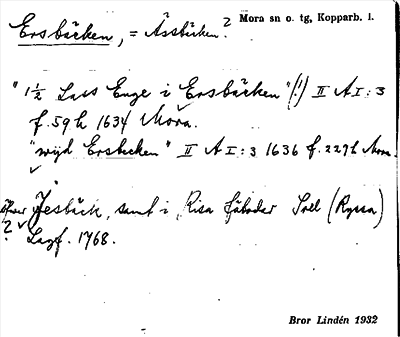 Ersbäcken, = Åssbäcken? Mora sn o. tg, Kopparb. l.
"1½ Lass Enge i Ersbäcken" (!) II A I : 3
f. 59 h 1634 Mora.
"wijd Ersbecken" II A I : 3 1636 f. 227 h Mora.
Jesbäck, samt i Risa fäbodar Soll (Ryssa)
? Lagf. 1768.
Bror Lindén 1932